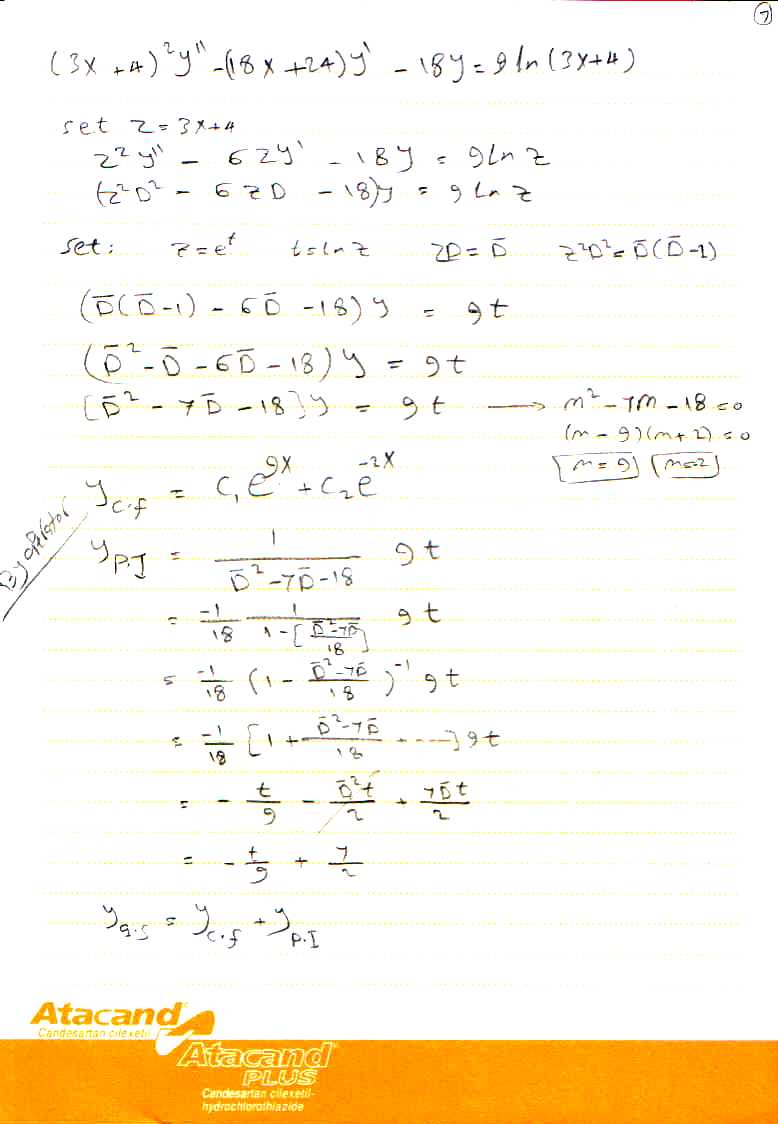 7
(3x+4)²y'' -(18x+24)y' - 18y = 9 ln(3x+4)
set z = 3x+4
z²y'' - 6zy' - 18y = 9 ln z
(z²D² - 6zD - 18)y = 9 ln z
set: z = eᵗ t = ln z zD = D̄ z²D² = D̄(D̄-1)
(D̄(D̄-1) - 6D̄ - 18)y = 9t
(D̄² - D̄ - 6D̄ - 18)y = 9t
[D̄² - 7D̄ - 18]y = 9t → m² - 7m - 18 = 0
(m - 9)(m + 2) = 0
m = 9 m = -2
y_c.f = C₁e^9x + C₂e^-2x
By operator
y_P.I = 1/(D̄² - 7D̄ - 18) 9t
= -1/18 1/(1 - [(D̄² - 7D̄)/18]) 9t
= -1/18 (1 - (D̄² - 7D̄)/18)⁻¹ 9t
= -1/18 [1 + (D̄² - 7D̄)/18 + ----] 9t
= - t/9 - D̄²t/2 + 7D̄t/2
= - t/9 + 7/2
y_g.s = y_c.f + y_P.I
Atacand
Candesartan cilexetil
Atacand
PLUS
Candesartan cilexetil-
hydrochlorothiazide